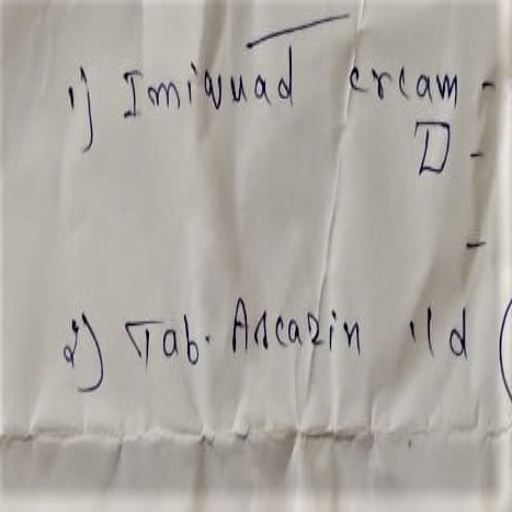 1) Imiquad cream -
D -
-
2) Tab. Ascazin 1/d (